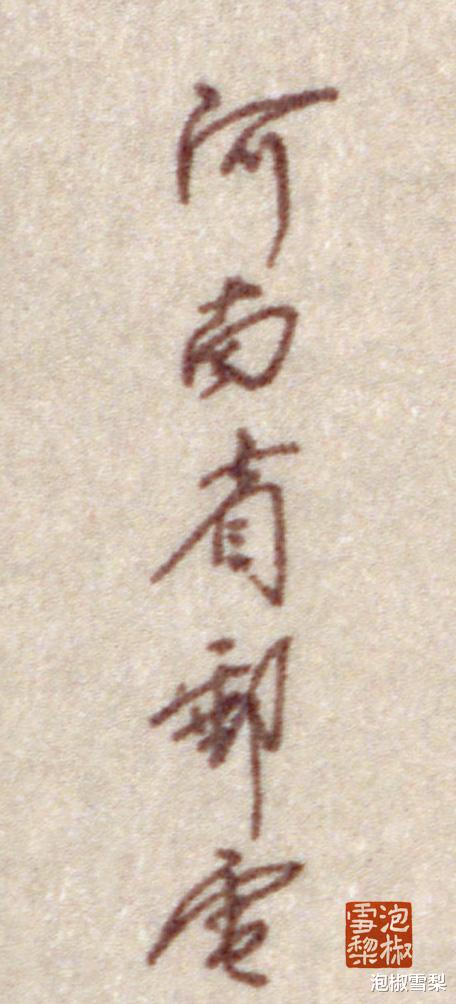 河南省郵電
泡椒雪梨
泡椒雪梨